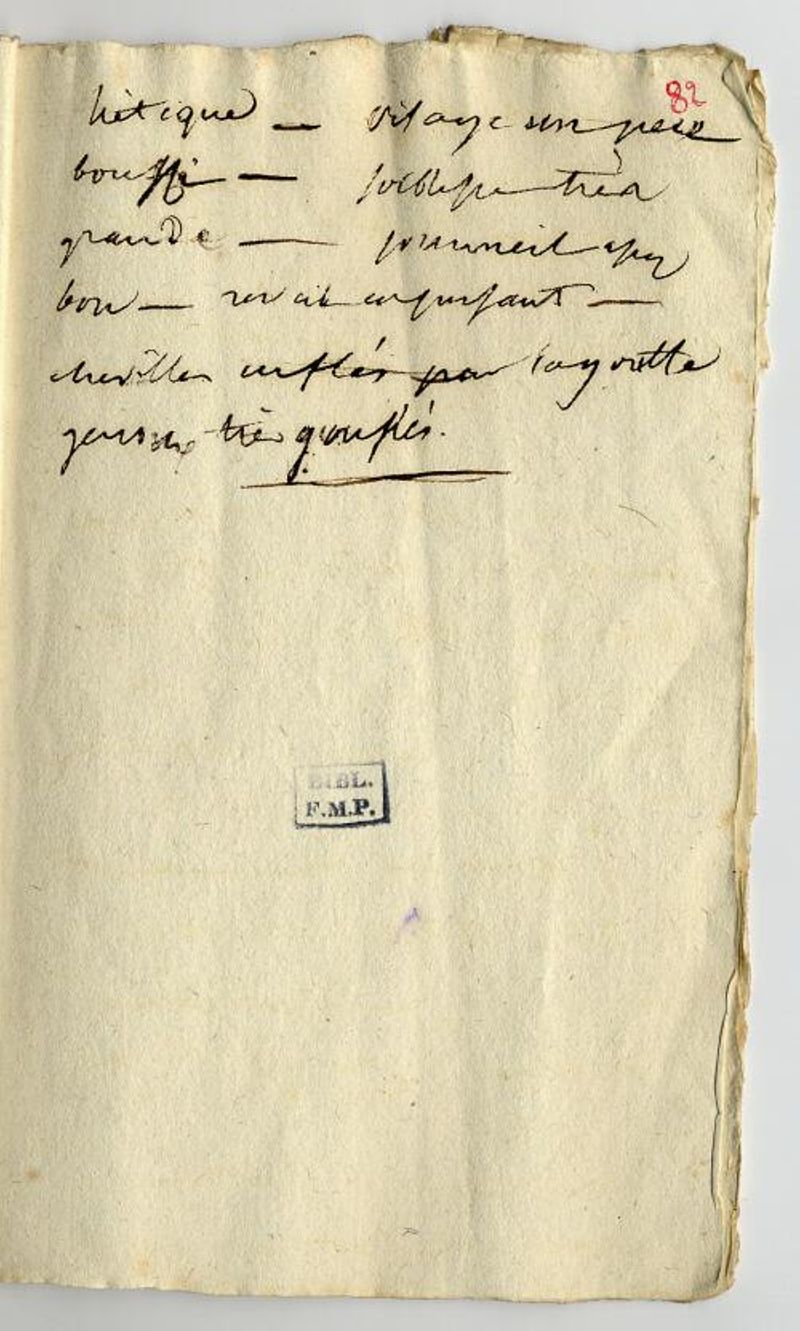 82
hétique — visage un peu
bouffi — foiblesse très
grande — sommeil assez
bon — ventre —
chevilles enflés par
genoux très gonflés.
BIBL.
F.M.P.